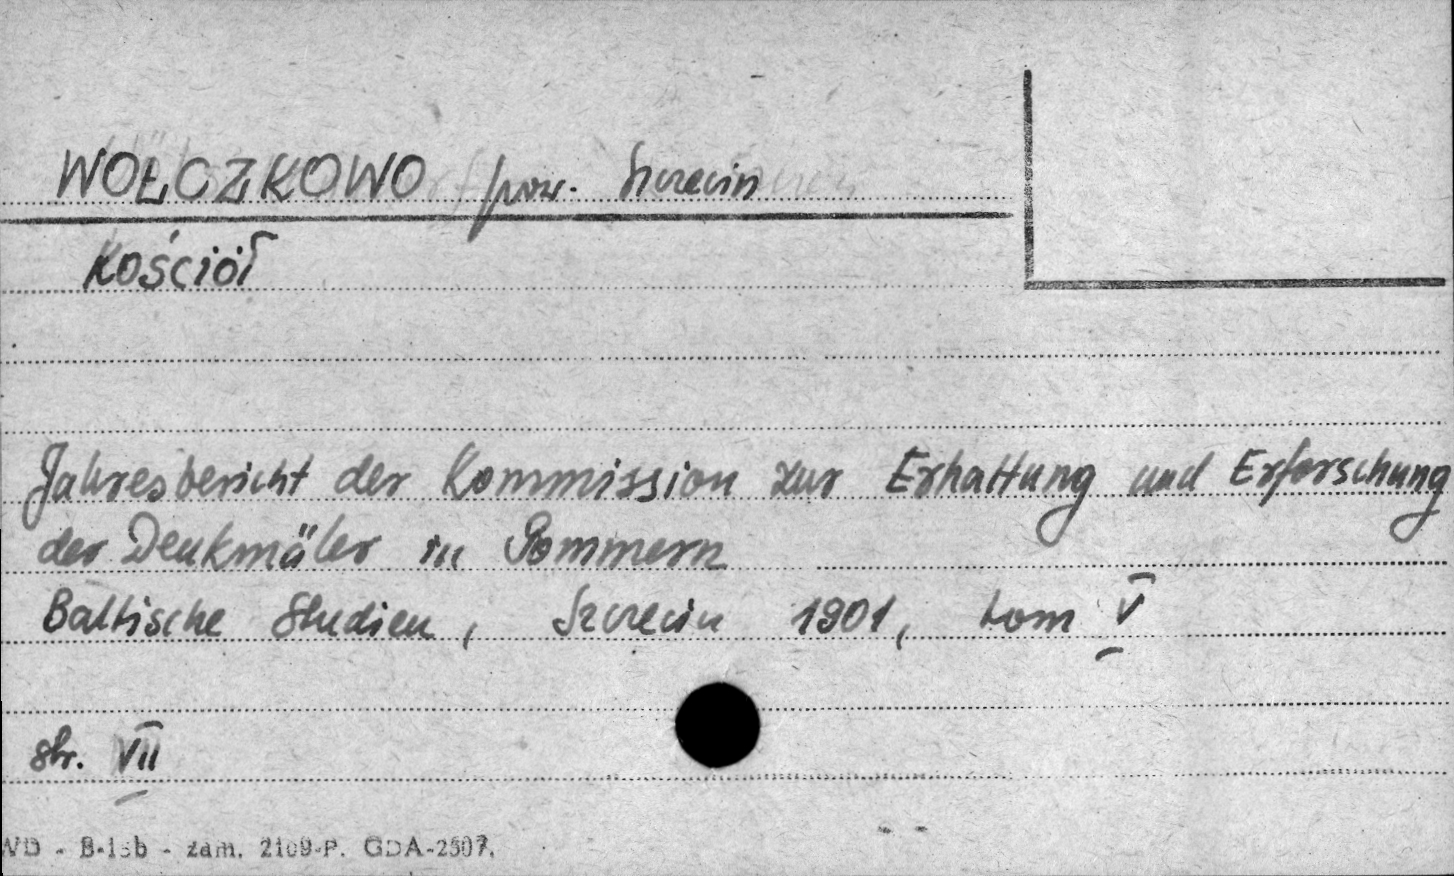 WOŁCZKOWO pow. Szczecin
Kościół
Jahresbericht der Kommission zur Erhaltung und Erforschung
der Denkmäler in Pommern
Baltische Studien, Szczecin 1901, tom V
str. VII
WD - B-15b - zam. 2109-P. GDA-2507.